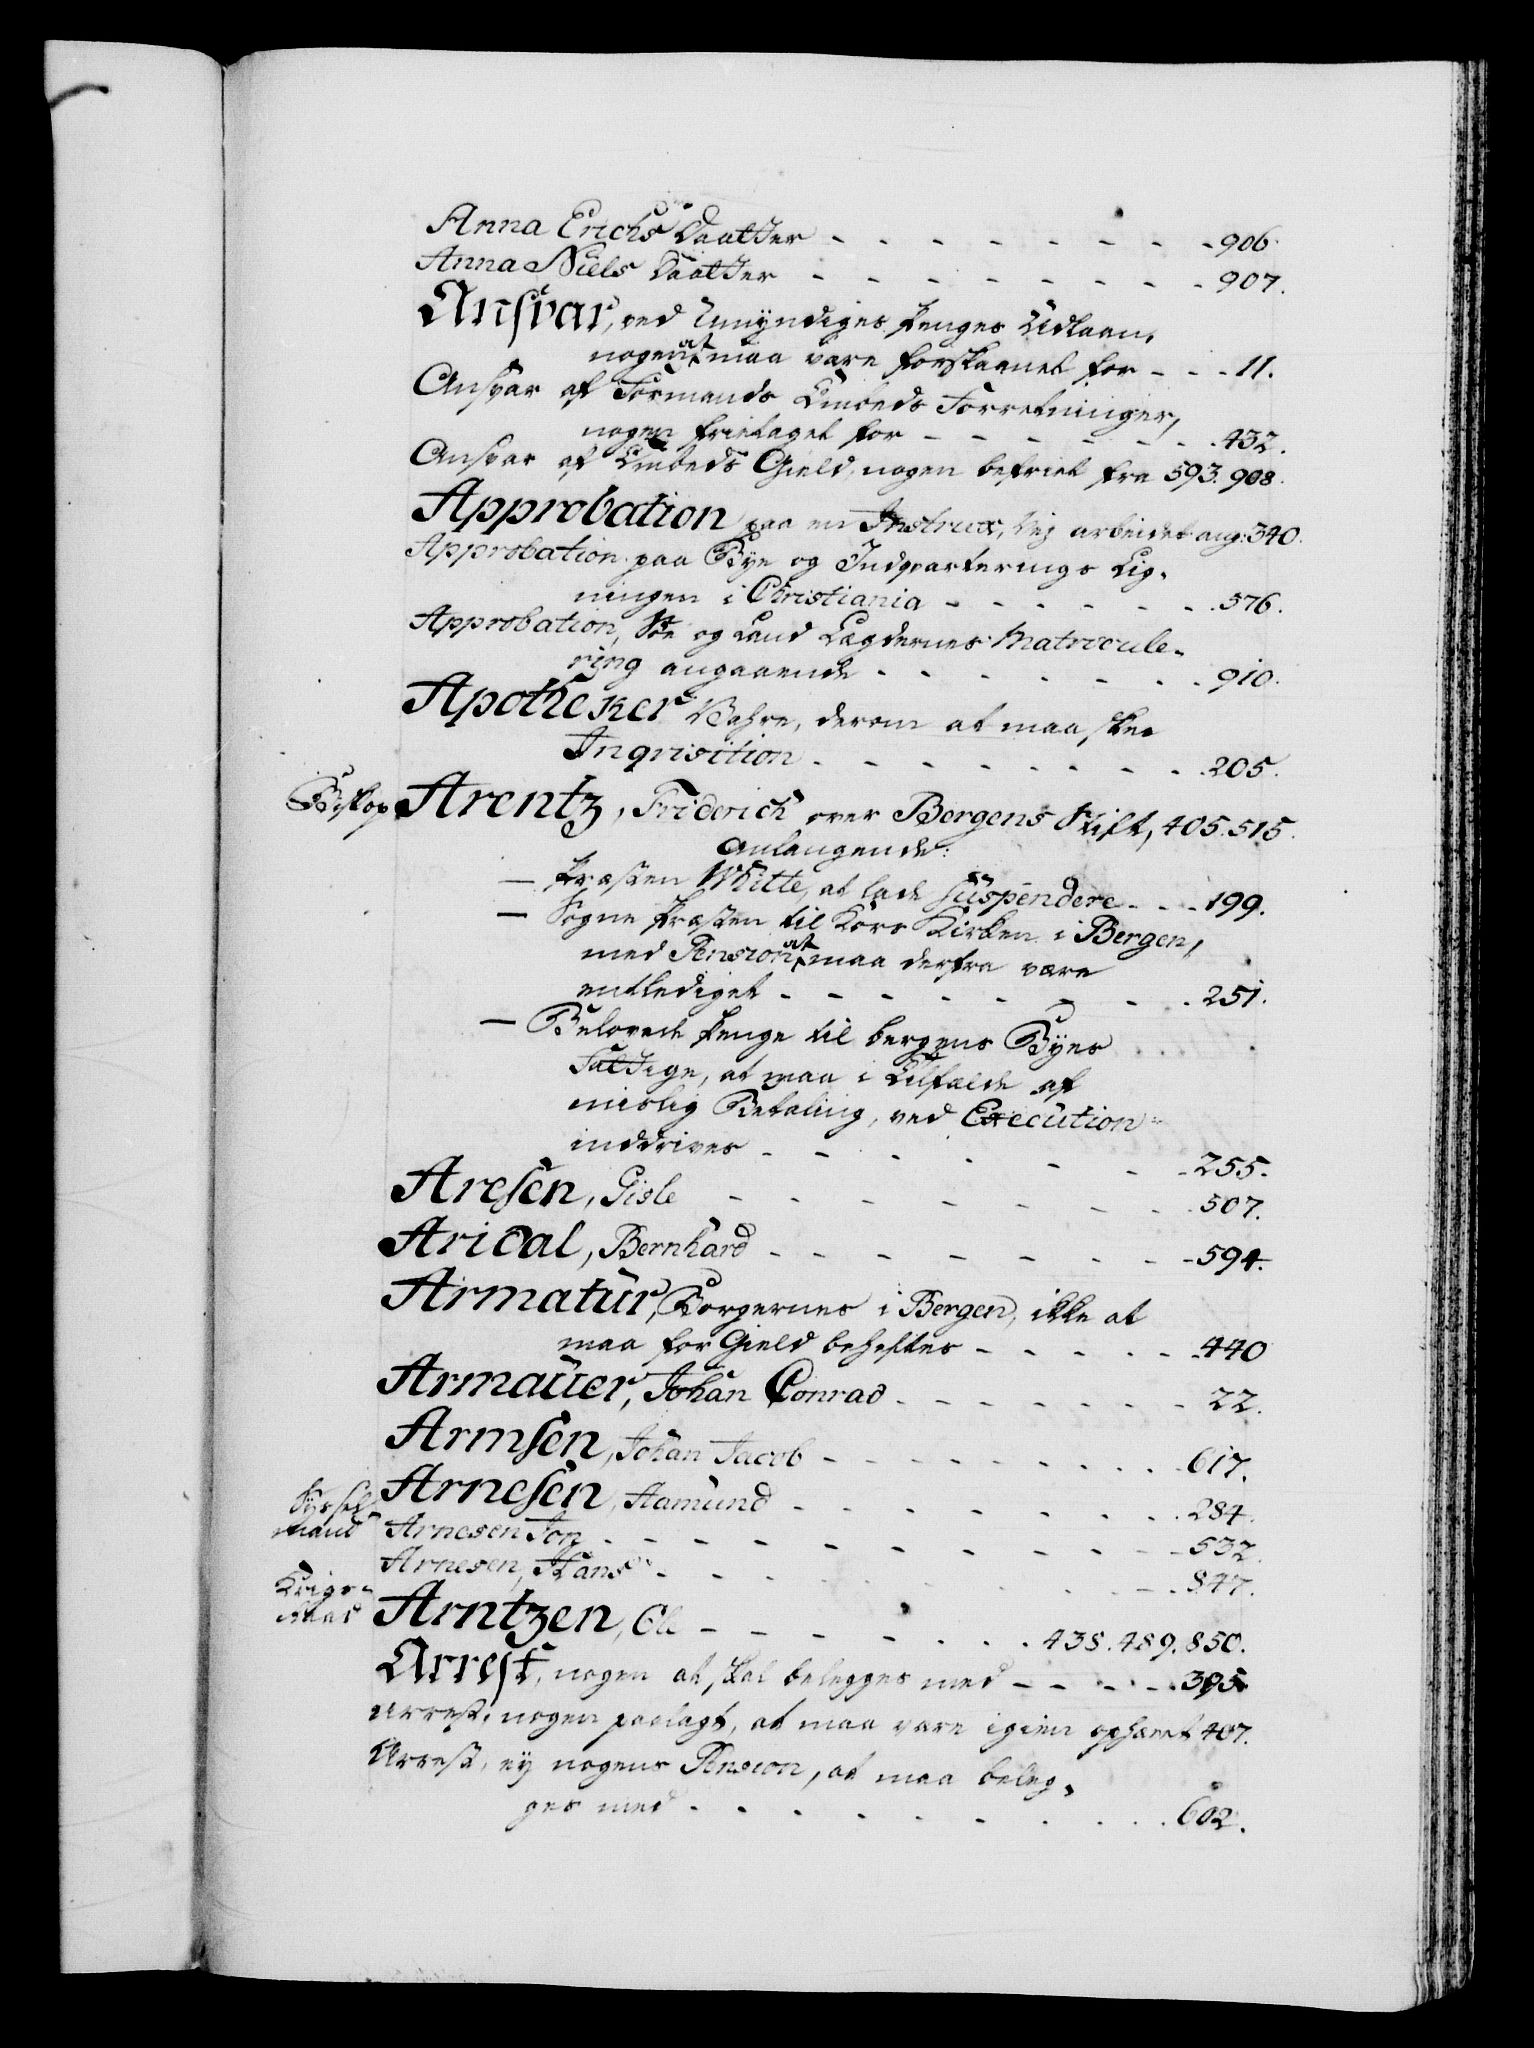 Anna Erichs Daatter - - - - - - - - 906.
Anna Niels Daatter - - - - - - - - 907.
Ansvar, ved Umyndiges Penges Udlaan,
nogen at maa være forskaanet for - - - 11.
Ansvar af Formands Embeds Forretninger,
nogen frietaget for - - - - - - 432.
Ansvar af Embeds Gield, nogen befriet fra 593. 908.
Approbation paa en Instrux, Vej arbeidet ang: 340.
Approbation paa Bye og Indqvarterings Lig-
ningen i Christiania - - - - - - 576.
Approbation, Søe og Land Lægdernes Matricule-
ring angaaende - - - - - - - 910.
Apotheker Vahre, derom at maa skee
Inqvisition - - - - - - - - 205.
Biskop Arentz, Friderich over Bergens Stift, 405. 515.
Anlangende:
— Præsten Whitte, at lade suspendere - - - 199.
— Sogne Præsten til Kors Kirken i Bergen,
med Pension at maa derfra være
entlediget - - - - - - - - 251.
— Belovede Penge til Bergens Byes
Fattige, at maa i Tilfælde af
mislig Betaling, ved Execution
inddrives - - - - - - - 255.
Aresen, Gisle - - - - - - - 507.
Aridal, Bernhard - - - - - - - 594.
Armatur, Borgernes i Bergen, ikke at
maa for Gield behæftes - - - - - 440
Armauer, Johan Conrad - - - - - - 22.
Armsen, Johan Jacob - - - - - - - 617.
Arnesen, Aamund - - - - - - - 284.
Syssel
mand Arnesen Jon - - - - - - - - - 532.
Arnesen, Hans - - - - - - - - - 847.
Krigs-
Raad Arntzen, Ole - - - - - - - 438. 489. 850.
Arrest, nogen at skal belegges med - - - - 395.
Arrest, nogen paalagt, at maa være igien ophævet 407.
Arrest, ey nogens Pension, at maa beleg-
ges med - - - - - - - - 602.